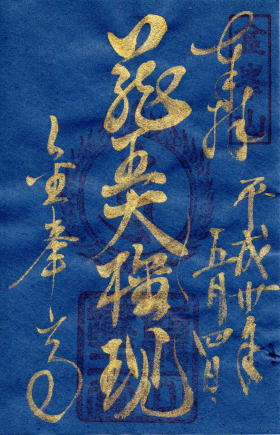 奉拝
金峯山
平成卅年
五月四日
蔵王大権現
金峯山寺